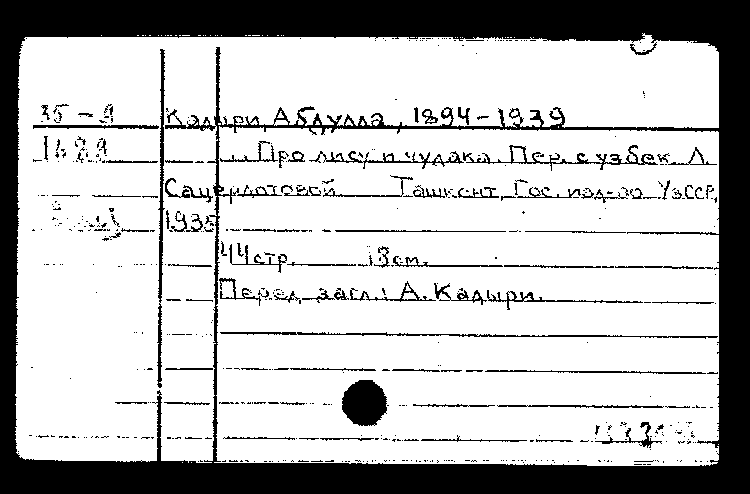 35-9 Кадыри, Абдулла, 1894-1939
1689 ... Про лису и чудака. Пер. с узбек. Л.
Сацердотовой. Ташкент, Гос. изд-во УзССР,
1935
44 стр. 18 см.
Перед загл.: А. Кадыри.